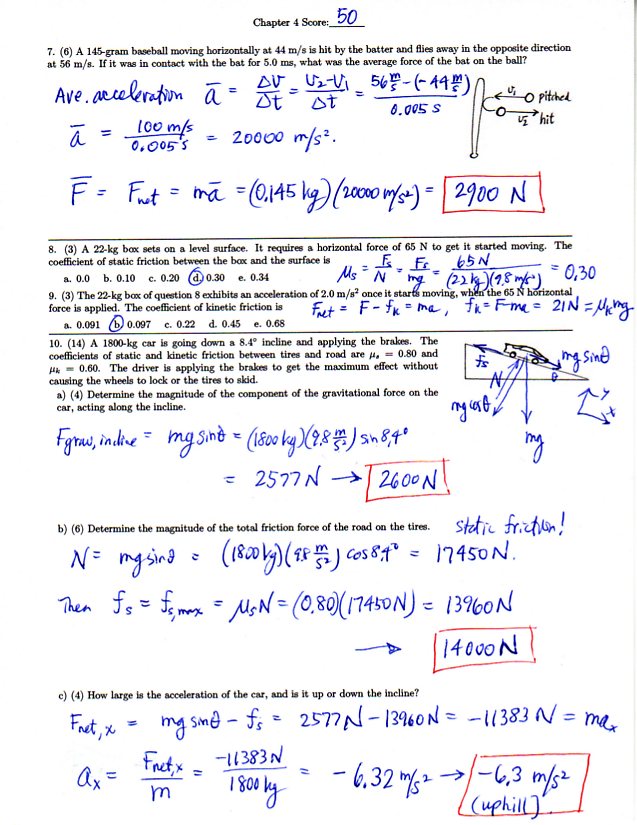 Chapter 4 Score: 50
7. (6) A 145-gram baseball moving horizontally at 44 m/s is hit by the batter and flies away in the opposite direction
at 56 m/s. If it was in contact with the bat for 5.0 ms, what was the average force of the bat on the ball?
Ave. acceleration ā = Δv/Δt = (v₂-v₁)/Δt = (56 m/s - (-44 m/s))/0.005 s
v₁ pitched
v₂ hit
ā = 100 m/s / 0.005 s = 20000 m/s².
F̄ = Fnet = mā = (0.145 kg)(20000 m/s²) = 2900 N
8. (3) A 22-kg box sets on a level surface. It requires a horizontal force of 65 N to get it started moving. The
coefficient of static friction between the box and the surface is
a. 0.0 b. 0.10 c. 0.20 d. 0.30 e. 0.34
μs = Fs/N = Fs/mg = 65N/((22 kg)(9.8 m/s²)) = 0.30
9. (3) The 22-kg box of question 8 exhibits an acceleration of 2.0 m/s² once it starts moving, when the 65 N horizontal
force is applied. The coefficient of kinetic friction is
Fnet = F - fk = ma, fk = F-ma = 21N = μk mg
a. 0.091 b. 0.097 c. 0.22 d. 0.45 e. 0.68
10. (14) A 1800-kg car is going down a 8.4° incline and applying the brakes. The
coefficients of static and kinetic friction between tires and road are μs = 0.80 and
μk = 0.60. The driver is applying the brakes to get the maximum effect without
causing the wheels to lock or the tires to skid.
fs
mg sinθ
N
θ
mg cosθ
mg
y
x
a) (4) Determine the magnitude of the component of the gravitational force on the
car, acting along the incline.
Fgrav, incline = mg sinθ = (1800 kg)(9.8 m/s²) sin 8.4°
= 2577 N → 2600 N
b) (6) Determine the magnitude of the total friction force of the road on the tires.
static friction!
N = mg sinθ = (1800 kg)(9.8 m/s²) cos 8.4° = 17450 N.
Then fs = fs,max = μsN = (0.80)(17450 N) = 13960 N
→ 14000 N
c) (4) How large is the acceleration of the car, and is it up or down the incline?
Fnet,x = mg sinθ - fs = 2577 N - 13960 N = -11383 N = max
ax = Fnet,x/m = -11383 N/1800 kg = -6.32 m/s² → -6.3 m/s²
(uphill).